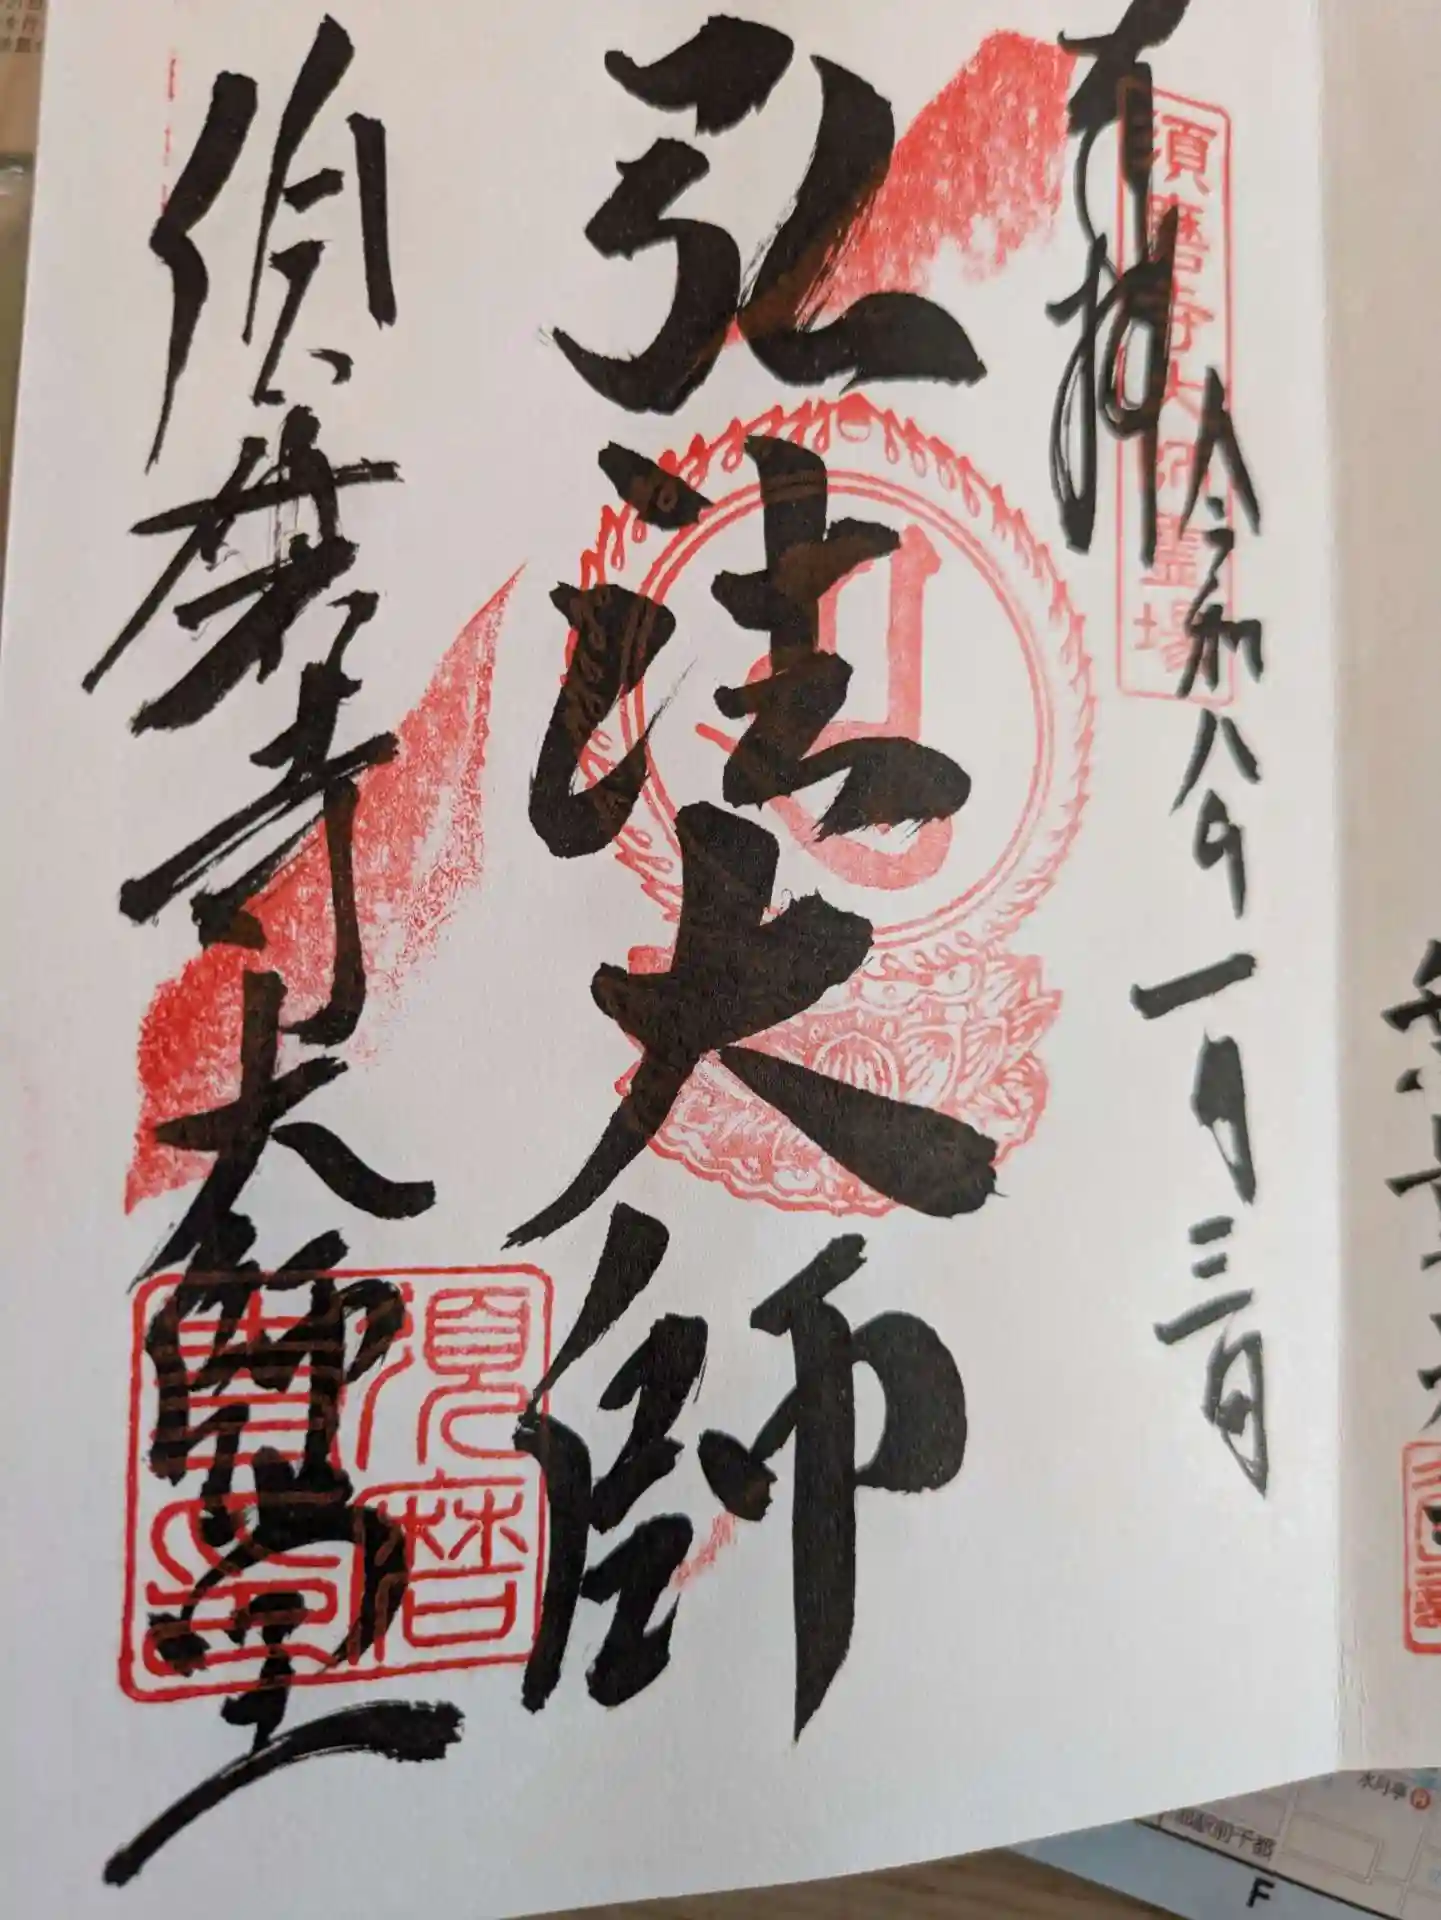 奉拝
須磨寺大師霊場
令和八年一月三日
弘法大師
須磨寺大師堂
須磨寺印
水月亭
F